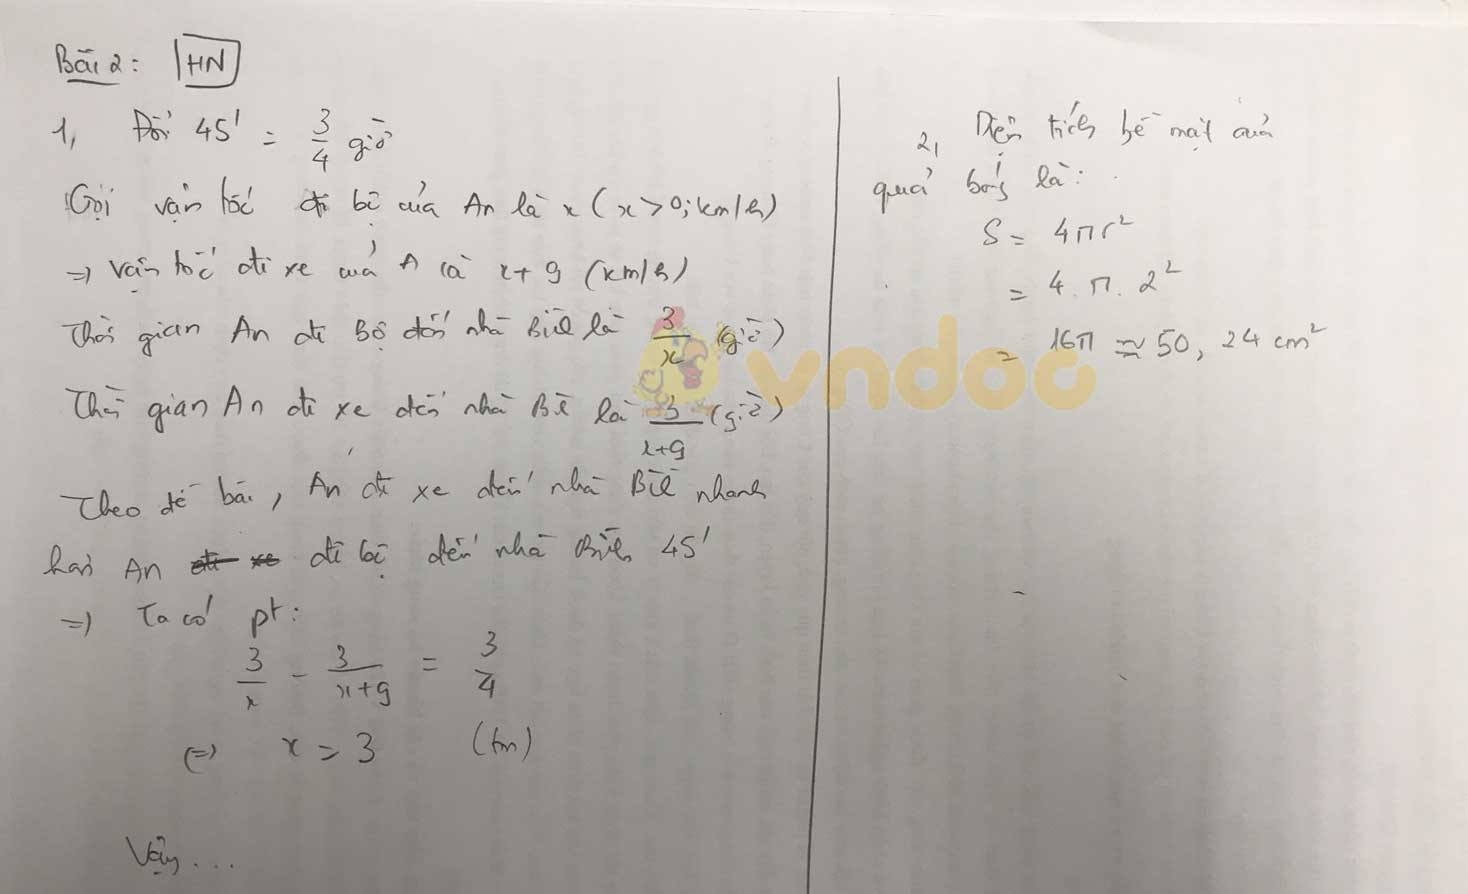 Bài 2: HN
1, Đổi 45' = 3/4 giờ
Gọi vận tốc đi bộ của An là x (x > 0; km/h)
=> Vận tốc đi xe của A là x + 9 (km/h)
Thời gian An đi Bộ đến nhà Bìl là 3/x (giờ)
Thời gian An đi xe đến nhà Bì là 3/x+9 (giờ)
Theo đề bài, An đi xe đến nhà Bìl nhanh
hơn An đi xe đi bộ đến nhà Bìh 45'
=> Ta có pt:
3/x - 3/x+9 = 3/4
<=> x = 3 (tm)
Vậy...
2, Diện tích bề mặt của
quả bóng là:
S = 4πr²
= 4.π.2²
= 16π ≈ 50,24 cm²
vndoc